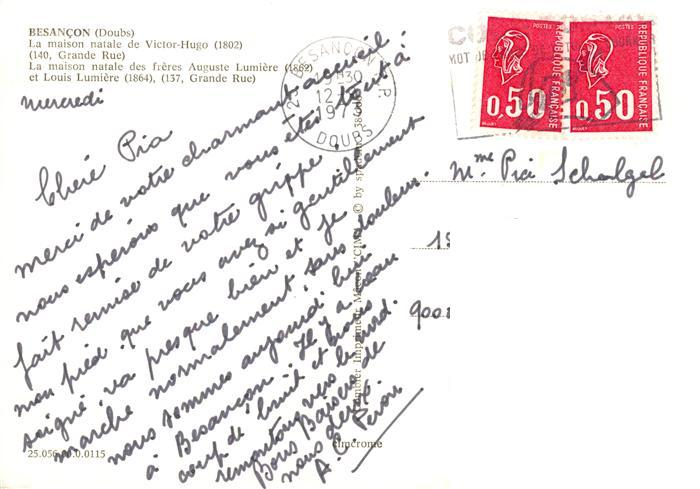 BESANÇON (Doubs)
La maison natale de Victor-Hugo (1802)
(140, Grande Rue)
La maison natale des frères Auguste Lumière (1862)
et Louis Lumière (1864), (137, Grande Rue)
mercredi
Chère Pia
merci de votre charmant accueil.
nous espérons que vous êtes tout à
fait remise de votre grippe,
mon pied que vous avez si gentillement
soigné va presque bien et je
marche normalement sans douleur.
nous sommes aujourd'hui
à Besançon. Il y a beau
coup de bruit et nous
remontons vers le nord.
Bons Baisers de
nous deux.
A. C.
25.056.00.0115
cimcrome
Combier Imprimeur Mâcon "CIM" © by
BESANÇON R.P.
12
1973
DOUBS
MOT
POSTES
RÉPUBLIQUE FRANÇAISE
0,50
BEQUET
POSTES
RÉPUBLIQUE FRANÇAISE
0,50
BEQUET
Mme Pia Schalgel
900